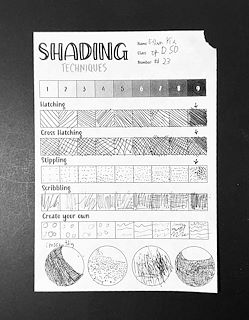 SHADING
TECHNIQUES
Name
Class
Number # 23
1 2 3 4 5 6 7 8 9
Hatching
Cross Hatching
Stippling
Scribbling
Create your own